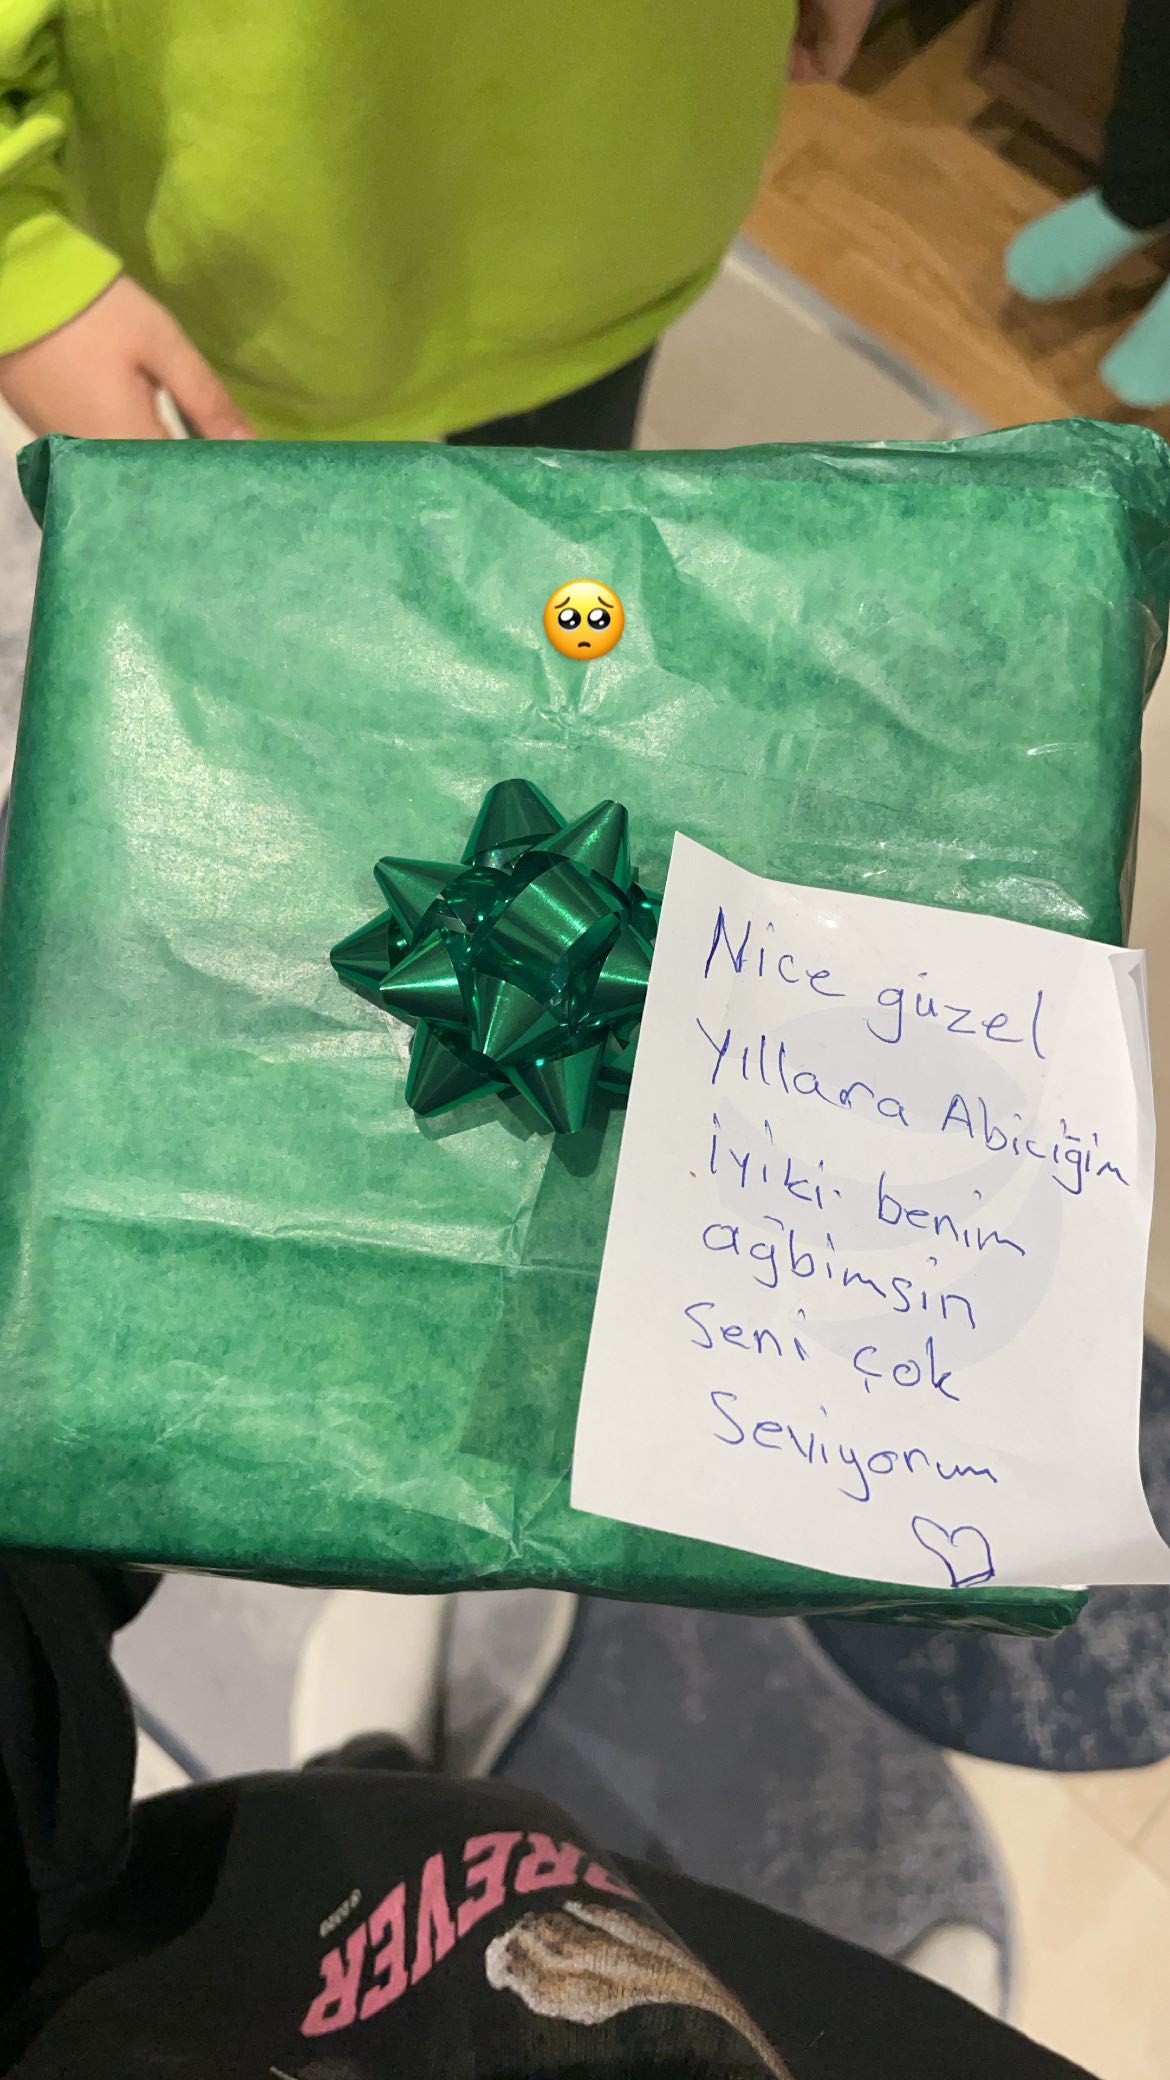 Nice güzel
Yıllara Abiciğim
iyiki benim
ağbimsin
Seni çok
Seviyorum
REVER